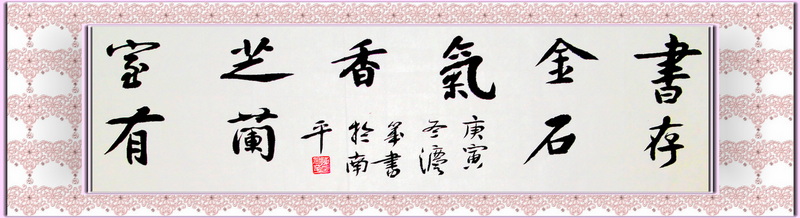 書存
金石
氣
室有
芝蘭
香
庚寅
冬
書
於南
平